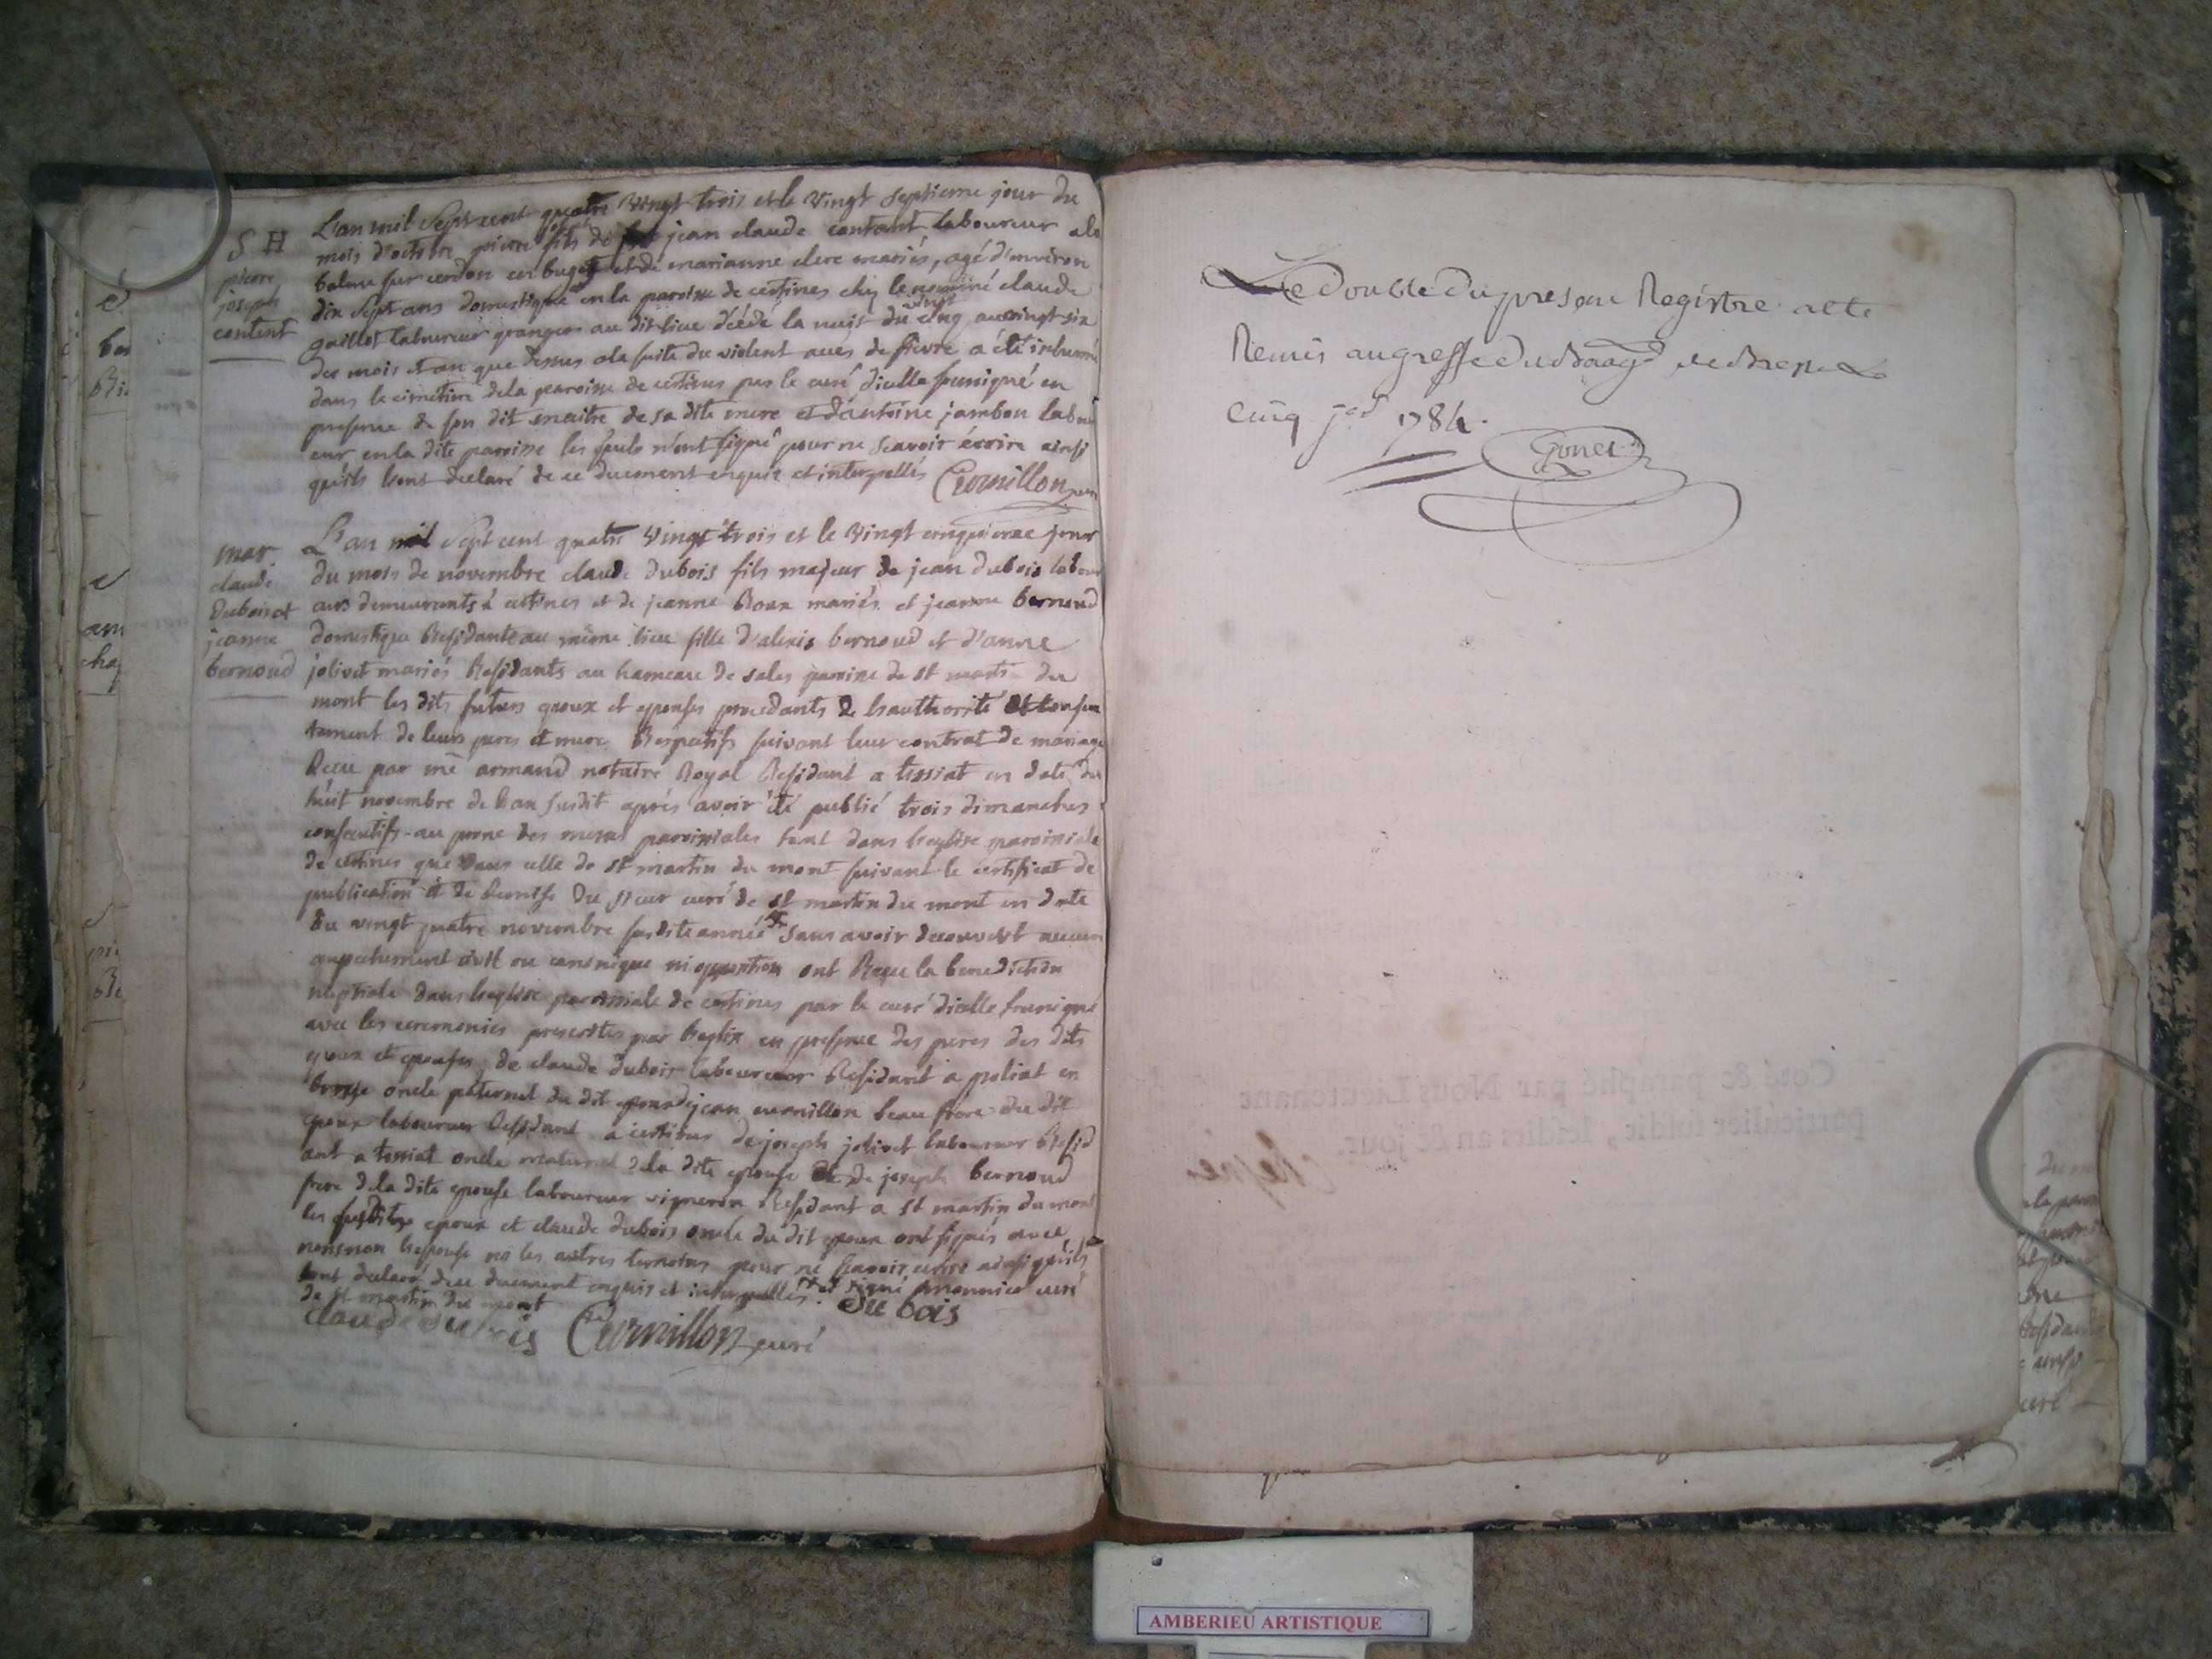 S H
pierre
joseph
content
L'an mil Sept cent quatre vingt trois et le vingt septieme jour du
mois d'octobre pierre joseph fils de jean claude contant laboureur a la
balme sur cerdon en bugey et de marianne clerc mariés, agé d'environ
dix Sept ans domestique en la paroisse de certines chez le nommé claude
guillot laboureur granger au dit lieu décédé la nuit du vingt cinq au vingt six
des mois et an que dessus a la suite du violent acces de fievre a été inhumé
dans le cimetiere de la paroisse de certines par le curé d'icelle soussigné en
presence de son dit maitre de sa dite mere et d'antoine jambon labour
eur en la dite paroisse les quels n'ont signé pour ne scavoir écrire ainsi
qu'ils l'ont declaré de ce duement enquis et interpellés Curnillon curé
mar
claude
dubois et
jeanne
bernoud
L'an mil Sept cent quatre vingt trois et le vingt cinquieme jour
du mois de novembre claude dubois fils majeur de jean dubois labour
eurs demeurants à certines et de jeanne Roux mariés et jeanne bernoud
domestique Residante au même lieu fille d'alexis bernoud et d'anne
jolivet mariés Residants au hameau de sales paroisse de st martin du
mont les dits futurs epoux et epouses procedants de l'authorité et consen
tement de leurs peres et mere Respectifs suivant leur contrat de mariage
Recu par me armand notaire Royal Residant a tossiat en date du
huit novembre de l'an susdit après avoir été publié trois dimanches
consecutifs au prone des messes paroissiales tant dans l'eglise paroissiale
de certines que dans celle de st martin du mont suivant le certificat de
publication et de Remise du sieur curé de st martin du mont en date
du vingt quatre novembre susdite année sans avoir decouvert aucun
empechement civil ou canonique ni opposition ont Reçu la benediction
nuptiale dans l'eglise paroissiale de certines par le curé d'icelle soussigné
avec les ceremonies prescrites par l'eglise en presence des peres des dits
epoux et epouses, de claude dubois laboureur Residant a poliat en
bresse oncle paternel du dit epoux de jean curnillon beau frere du dit
epoux laboureur Residant a certines de joseph jolivet laboureur Resid
ant a tossiat oncle maternel de la dite epouse et de joseph bernoud
frere de la dite epouse laboureur vigneron Residant a st martin du mont
les susdits epoux et claude dubois oncle du dit epoux ont signés avec
nous non l'epouse ni les autres temoins pour ne scavoir ecrire ainsi qu'ils
l'ont declaré de ce duement enquis et interpellés et signé curé
de st martin du mont
claude dubois Curnillon curé du bois
Le double du present Registre a ete
Remis au greffe du Baage de Bresse Le
Cinq jer 1784.
Gonet
AMBERIEU ARTISTIQUE